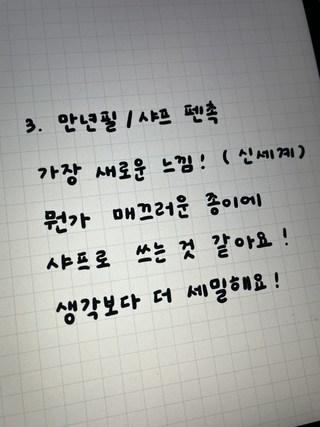 3. 만년필 / 샤프 펜촉
가장 새로운 느낌! (신세계)
뭔가 매끄러운 종이에
샤프로 쓰는 것 같아요!
생각보다 더 세밀해요!